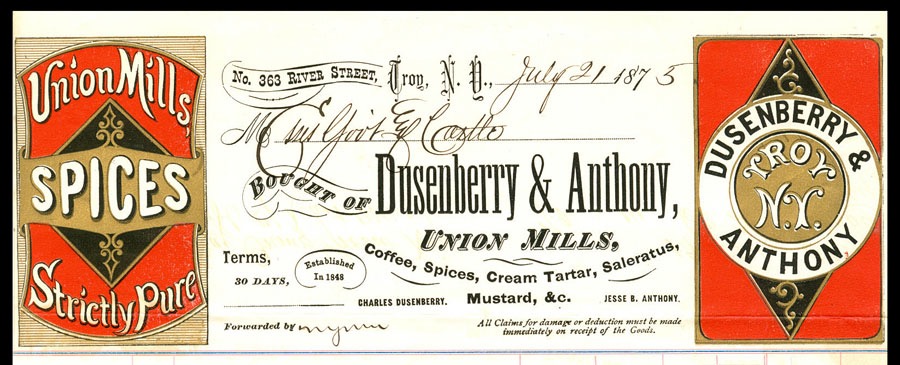 Union Mills,
SPICES
Strictly Pure
No. 363 RIVER STREET, Troy, N. Y., July 21 1875
M
BOUGHT OF Dusenberry & Anthony,
UNION MILLS,
Coffee, Spices, Cream Tartar, Saleratus,
Mustard, &c.
Terms,
30 DAYS,
Established
In 1848
CHARLES DUSENBERRY.
JESSE B. ANTHONY.
Forwarded by
All Claims for damage or deduction must be made
immediately on receipt of the Goods.
DUSENBERRY &
TROY
N.Y.
ANTHONY